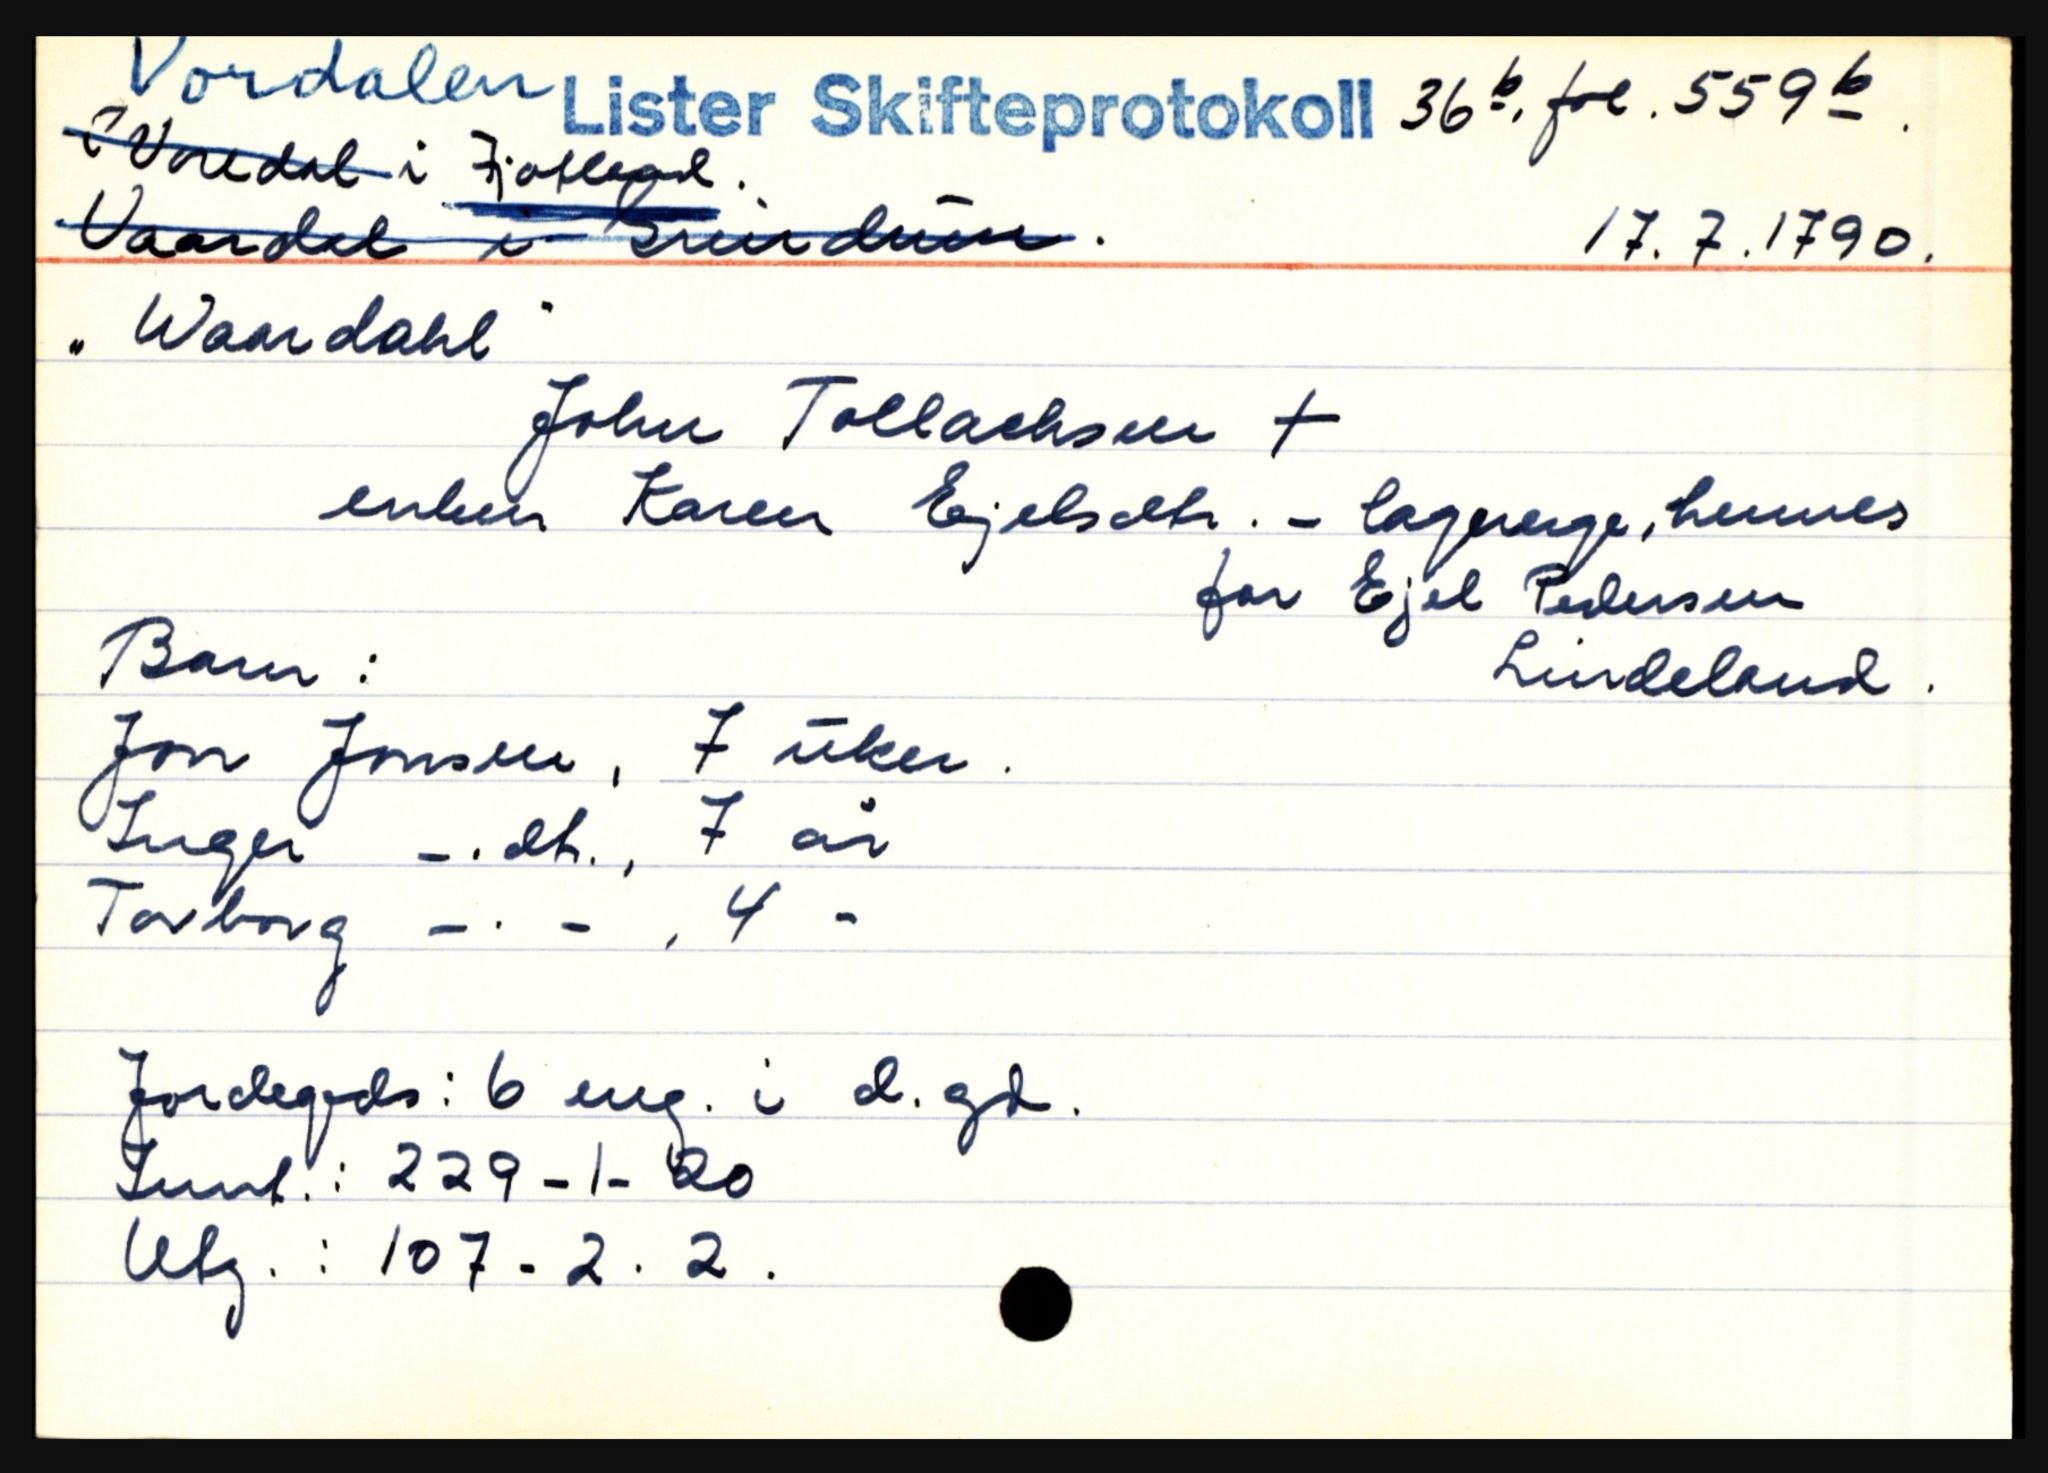 Vordalen Lister Skifteprotokoll 36b. fol. 559b.
? Voredal i Fjotland.
Vaardal i Grindum. 17.7.1790.
"Waardahl"
John Tollachsen +
enken Karen Ejelsdtr. - lagverge, hennes
far Ejel Pedersen
Lindeland.
Barn:
Jon Jonsen, 7 uker.
Inger -.dtr., 7 år
Torborg -.-, 4 -
Jordegods: 6 eng. i d. gd.
Innt.: 229-1-20
Utg.: 107-2.2.